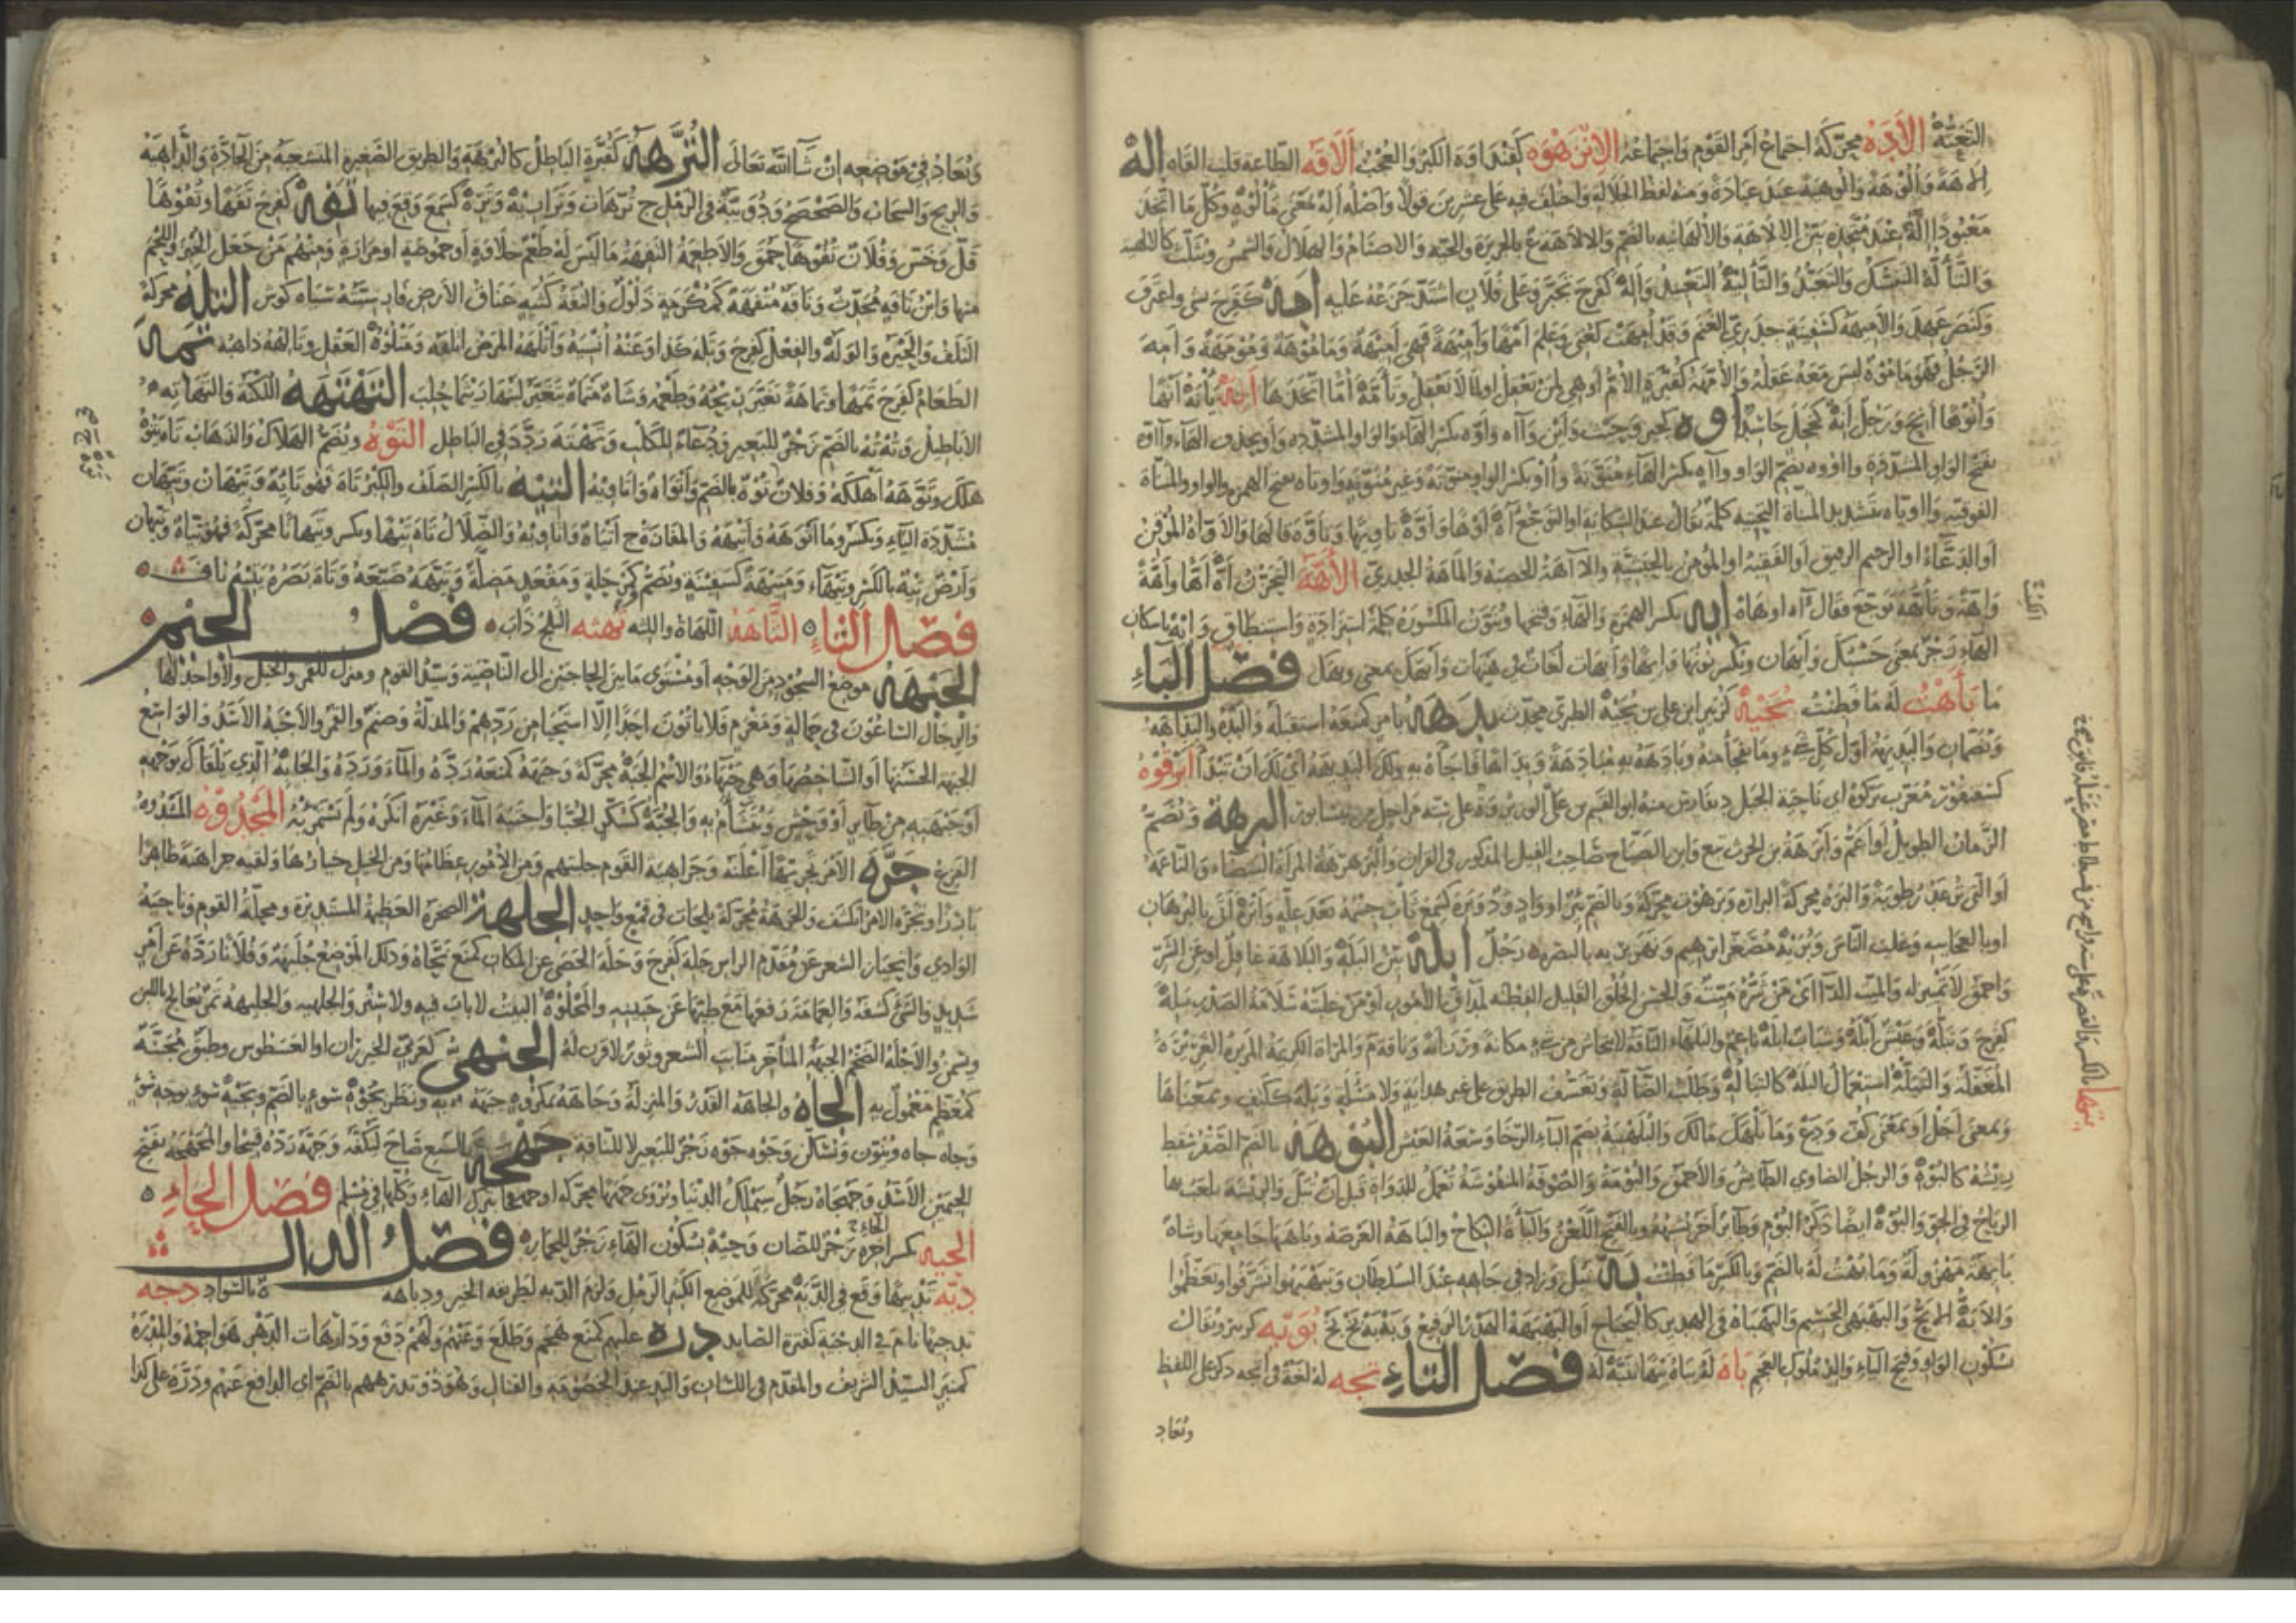 الأَبَدَهُ محرّكة اجتماع أمر القوم واجماعه الإِنْزَهْوَه كقندأوة الكبر والعجب الأَقَه الطاعة قلب القاه اله
إلاهة وألوهة وألوهية عبد عبادة ومنه لفظ الجلالة واختلف فيه على عشرين قولا وأصله إله بمعنى مألوه وكل ما اتخذ
معبودا إله عند متخذه بين الإلاهة والألهانية بالضم والإلاهة ع بالجزيرة والحية والأصنام والهلال والشمس ويثلث كالأليهة
والتأله التنسك والتعبد والتأليه التعبيد وأله كفرح تحير وعلى فلان اشتد جزعه عليه أمه كفرح نسي واعترف
وكنصر عهد والأميهة كسفينة جدري الغنم وقد أمهت كعني وعلم أمها وأميهة فهي أميهة ومأموهة ومؤمهة وأمه
الرجل فهو مأموه ليس معه عقله والأمهة كقبرة الأم أو هي لمن يعقل والأم لما لا يعقل وتأمه أما اتخذها أنه يأنه أنها
وأنوها أنح ورجل أنه كخجل حاسد أوه كجير وحيث وأين وآه وأوه بكسر الهاء والواو المشددة وأو بحذف الهاء وأوه
بفتح الواو المشددة وآووه بضم الواو وآه بكسر الهاء منونة وآو بكسر الواو منونة وغير منونة وأوتاه بفتح الهمزة والواو والمثناة
الفوقية وآويّاه بتشديد المثناة التحتية كلمة تقال عند الشكاية أو التوجع آه أوها وأوه تأويها وتأوه قالها والأواه الموقن
أو الدعاء أو الرحيم الرقيق أو الفقيه أو المؤمن بالحبشية والآهة الحصبة والماهة الجدري الأَهَّةُ التحزن أه أها وأهة
وآهة وتأهه توجع فقال آه أو هاه إيه بكسر الهمزة والهاء وفتحها وتنون المكسورة كلمة استزادة واستنطاق وإيه بإسكان
الهاء زجر بمعنى حسبك وأيهان وبكسر نونها وأيها وأيهات لغات في هيهات وأيهك بمعنى ويهك فصل الباء
ما بَأَهْتُ له ما فطنت بُحَيْه كزبير ابن علي بن بحيه الطبري محدث بدهه بأمر كمنعه استقبله والبده والبداهة
ويضمان والبديهة أول كل شيء وما يفجأ منه وبادهه به مبادهة وبداها فاجأه به ولك البديهة أي لك أن تبدأ أبرقوه
كسقنقور معرب بركوه أي ناحية الجبل د بفارس منه أبو القسم بن علي الوزير وة على ستة مراحل من نيسابور البرهة وتضم
الزمان الطويل أو أعم وأبرهة بن الحرث تبع وابن الصباح صاحب الفيل المذكور في القرآن والبرهرهة المرأة البيضاء والناعمة
أو التي ترعد رطوبة والبره محركة البرارة وبرهوت محركة وبالضم بئر أو واد أو د وبره كسمع ثاب جسمه بعد علة وأبره أتى بالبرهان
أو بالعجائب وغلب الناس وبريه مصغر إبراهيم ونهر بريه بالبصرة رجل أبله بين البله والبلاهة غافل أو عن الشر
وأحمق لا تمييز له والميت الداء أي من شره ميت والحسن الخلق القليل الفطنة لمداق الأمور أو من غلبته سلامة الصدر بله
كفرح وتبله وعيش أبله وشباب أبله ناعم والبلهاء الناقة لا تنحاش من شيء مكانة ورزانة وناقة م والمرأة الكريمة المريرة الغريرة
المغفلة والتبله استعمال البله كالتباله وتطلب الضالة وتعسف الطريق على غير هداية ولا مسألة وبله ككيف وبمعناها
وبمعنى أجل أو بمعنى كف ودع وما بلهك مالك والبلهنية بضم الباء الرخا وسعة العيش البوهة بالضم الصقر سقط
ريشه كالبوه والرجل الضاوي الطائش والأحمق والبومة والصوفة المنفوشة تعمل للدواة قبل أن تبل والريشة يلعب بها
الرياح في الجو والبوه أيضا ذكر البوم وطائر آخر يشبهه وبالفتح اللعن والباه النكاح والباهة العرصة وباهها جامعها وشاة
بائهة مهزولة وما بهت له بالضم وبالكسر ما فطنت به نبل وزاد في جاهه عند السلطان وتبهبهوا تشرفوا وتعظموا
والأبه الأبح والبهبهي الجسيم والبهباه في الهدير كالبخباخ أو البهبهة الهدر الرفيع وبه به بخ بخ بُوَيْه كزبير ويقال
بسكون الواو وفتح الياء والد ملوك العجم باه له يباه بيها تنبه له فصل التاء تجه له لغة في اتجه ذكر على اللفظ
ويعاد
ويعاد في موضعه إن شاء الله تعالى التُّرَّهَة كقبرة الباطل كالترهة والطريق الصغيرة المتشعبة من الجادة والداهية
والريح والسحاب والصحصح ودويبة في الرمل ج ترهات وتراريه وتره كسمع وقع فيها تفه كفرح تفها وتفوها
قل وخس وفلان تفوها حمق والأطعمة التفهة ما ليس له طعم حلاوة أو حموضة أو مرارة ومنهم من جعل الخبز واللحم
منها وابن تافه محدث وناقة متفهة كمكرمة ذلول والتفه كثبة عناق الأرض فارسيته سياه كوش التله محركة
التلف والحيرة والوله والفعل كفرح وتله كذا وعنه أنسيه وأتلهه المرض أتلفه ومتلوه العقل وتالهه ذاهبه تمه
الطعام كفرح تمها وتماهة تغير ريحه وطعمه وشاة متماه يتغير لبنها ريثما يحلب التهتهة اللكنة والتهاته
الأباطيل وته ته بالضم زجر للبعير ودعاء للكلب وتهته ردد في الباطل التَّوْهُ ويضم الهلاك والذهاب تاه يتوه
هلك وتوهه أهلكه وفلاة توه بالضم وأتواه وأتاويه التيه بالكسر الصلف والكبر تاه فهو تائه وتيهان وتيهان
مشددة الياء وبكسر وما أتوهه وأتيهه والمفازة ج أتياه وأتاويه والضلال تاه تيها وبكسر وتيهانا محركة فهو تياه وتيهان
وأرض تيه بالكسر وتيهاء ومتيهة كسفينة وتضم كمرحلة ومقعد مضلة وتيهه ضيعه وتاه بصره يتيه تاف
فصل الثاء الثَّاهَة اللهاة واللثة ثهثه الثلج ذاب فصل الجيم
الجبهة موضع السجود من الوجه أو مستوى ما بين الحاجبين إلى الناصية وسيد القوم ومنزل للقمر والخيل ولا واحد لها
والرجال الساعون في حمالة ومغرم فلا يأتون أحدا إلا استحيا من ردهم والمذلة وصنم والقمر والأجبه الأسد والواسع
الجبهة الحسنها أو الشاخصها وهي جبهاء والاسم الجبه محركة وجبهه كمنعه رده والماء ورده والجابه الذي يلقاك بوجهه
أو جبهته من طائر أو وحش ويتشاءم به والجبه كسكر الجبا واجتبه الماء وغيره أنكره ولم يستمرئه المَجْدُوه المشدوه
الفزع جره الأمر تجريها أعلنه وجراهية القوم جلبتهم ومن الأمور عظامها ومن الخيل خيارها ولقيه جراهية ظاهرا
بارزا وتجره الأمر انكشف والجرهة محركة بلحات في قمع واحد الجلهة الصخرة العظيمة المستديرة ومحلة القوم وناحية
الوادي وانحسار الشعر عن مقدم الرأس جله كفرح وجله الحصى عن المكان كمنع نحاه وذلك الموضع جليهة وفلانا رده عن أمر
شديد والشيء كشفه والعمامة رفعها مع طيها عن جبينه والمجلوه البيت لا باب فيه ولا ستر والجلهية والجليهة تمر يعالج باللبن
ويسمن والأجله الضخم الجبهة المتأخر منابت الشعر وثور لا قرن له الجنهي كعربي الخيزران أو العسطوس وطبق مجنه
كمعظم معمول به الجاه والجاهة القدر والمنزلة وجاهه بمكروه جبهه به ونظر بجوه سوء بالضم وبجيه سوء بوجه سوء
وجاه جاه وينون ويسكن وجوه جوه زجر للبعير لا للناقة جهجه بالسبع صاح ليكفه وجهه رده قبيحا والمجهجه بفتح
الجيمين الأسد وجهجاه رجل سيملك الدنيا ويروى جهجها محركة أو جهجا بترك الهاء وكلها في مسلم فصل الحاء
الحيه بكسر آخره زجر للضان وحيه بسكون الهاء زجر للحمار فصل الدال
دبه تدبيها وقع في الدبه محركة للموضع الكثير الرمل ولزم الدبه لطريقة الخير ودباهة ة بالسواد دجه
تدجيها نام في الدجية لقترة الصائد دره عليهم كمنع هجم وطلع وعنهم ولهم دفع ودارهات الدهر هواجمه والمدره
كمنبر السيد الشريف والمقدم في اللسان واليد عند الخصومة والقتال وهو ذو تدرههم بالضم أي الدافع عنهم ودره على كذا